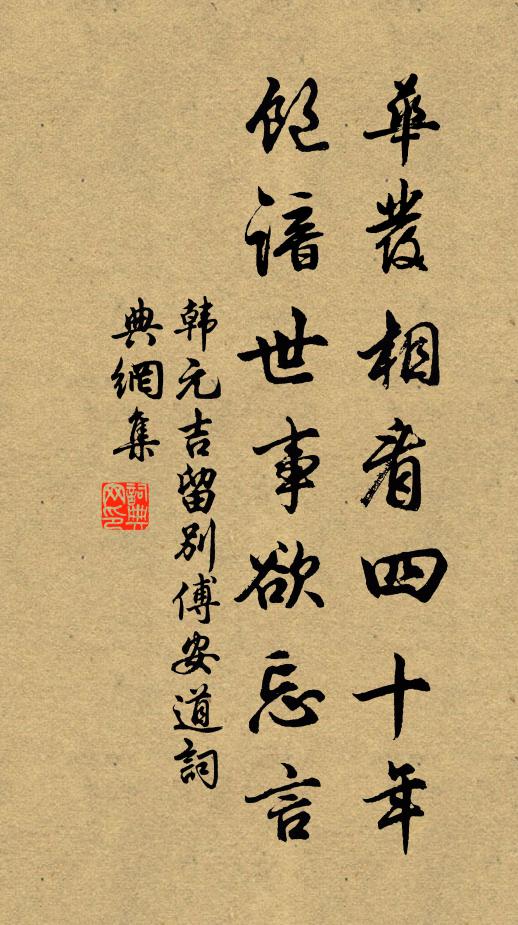 華發相看四十年
飽諳世事欲忘言
韩元吉留別傅安道詞
典網集
詞典
网印